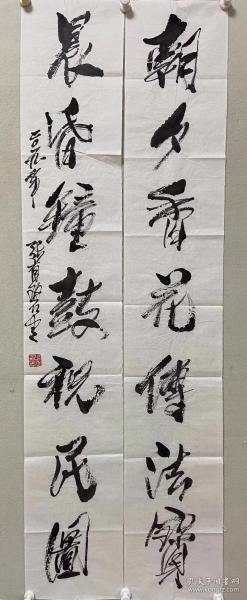 朝夕香花傳法寶
晨昏鐘鼓祝民圖
二〇一九年
孔夫子旧书网